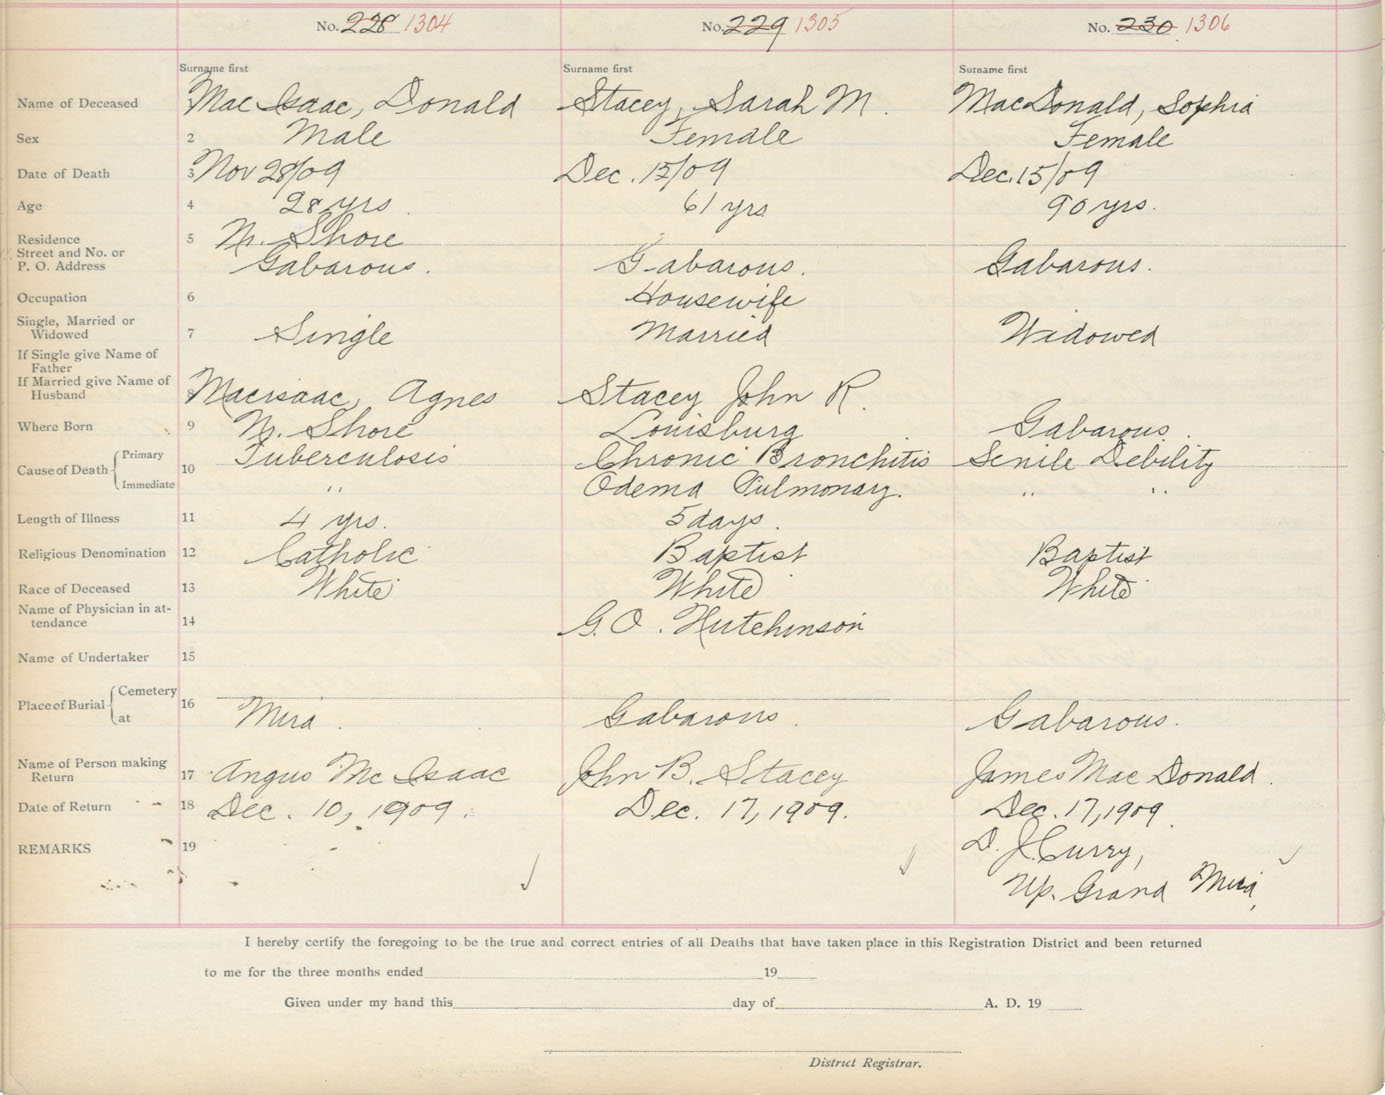 No. 228 1304 No. 229 1305 No. 230 1306
Surname first Surname first Surname first
Name of Deceased MacIsaac, Donald Stacey, Sarah M. MacDonald, Sophia
Sex 2 Male Female Female
Date of Death 3 Nov 28/09 Dec. 15/09 Dec. 15/09
Age 4 28 yrs 61 yrs 90 yrs.
Residence 5 N. Shore
Street and No. or
P. O. Address Gabarous. Gabarous. Gabarous.
Occupation 6 Housewife
Single, Married or
Widowed 7 Single Married Widowed
If Single give Name of
Father
If Married give Name of
Husband 8 Macisaac, Agnes Stacey John R.
Where Born 9 N. Shore Louisburg Gabarous.
Cause of Death Primary 10 Tuberculosis Chronic Bronchitis Senile Debility
Immediate " Odema Pulmonary. " "
Length of Illness 11 4 yrs. 5 days.
Religious Denomination 12 Catholic Baptist Baptist
Race of Deceased 13 White White White
Name of Physician in at-
tendance 14 G. O. Hutchinson
Name of Undertaker 15
Place of Burial Cemetery 16
at Mira. Gabarous. Gabarous.
Name of Person making
Return 17 Angus McIsaac John B. Stacey James MacDonald.
Date of Return 18 Dec. 10, 1909. Dec. 17, 1909. Dec. 17, 1909
REMARKS 19 D. J. Curry,
Up. Grand Mira,
I hereby certify the foregoing to be the true and correct entries of all Deaths that have taken place in this Registration District and been returned
to me for the three months ended 19
Given under my hand this day of A. D. 19
District Registrar.